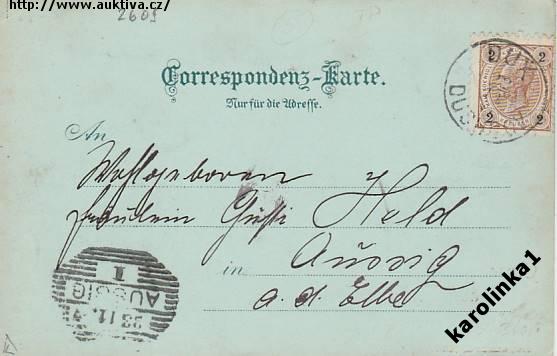 http://www.auktiva.cz/
2609
Correspondenz-Karte.
Nur für die Adresse.
2 2
2 2
DUX
DUCHCOV
An
Wohlgeboren
Fräulein Gusti Held
in Aussig
a. d. Elbe
AUSSIG
1
karolinka1